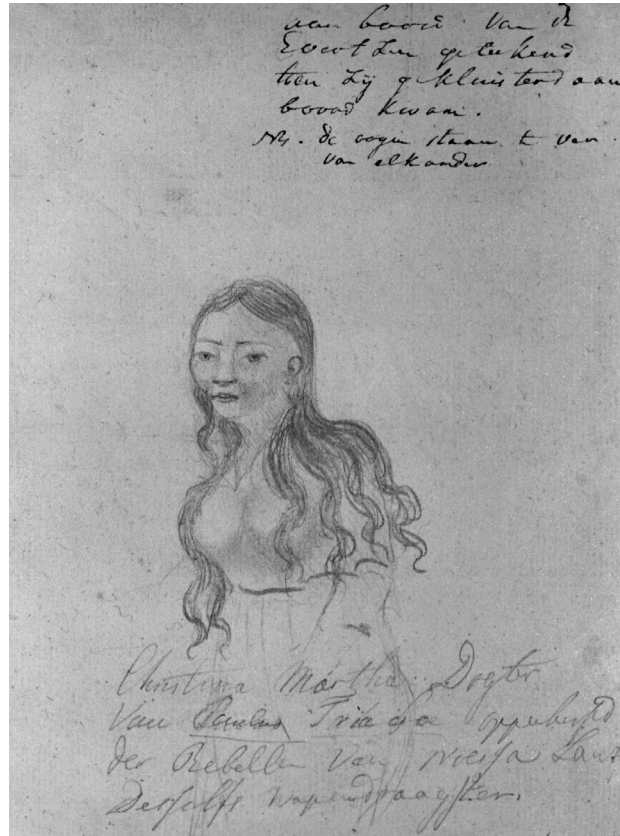 aan boord van de
Evertzen geteekend
toen Zij gekluisterd aan
boord kwam.
NB. de oogen staan te ver
van elkander
Christina Martha Dogter
Van Paulus Triago opperhoofd
der Rebellen Van Noessa Laut
Deszelfs wapendraagster.